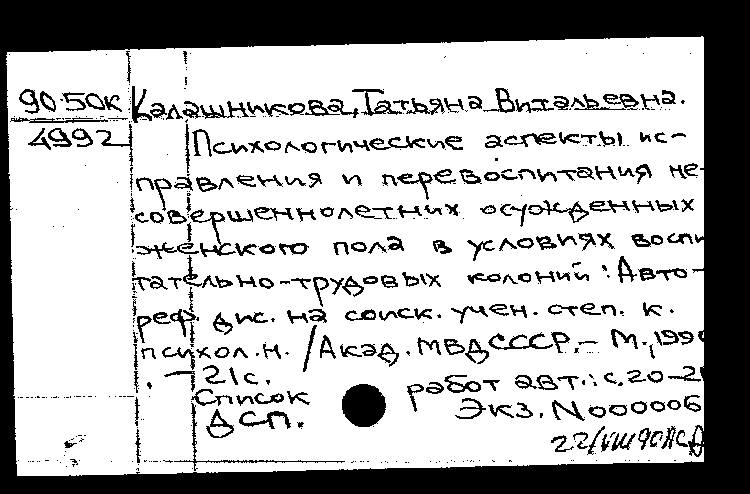 90-50к Калашникова, Татьяна Витальевна.
4992 Психологические аспекты ис-
правления и перевоспитания не-
совершеннолетних осужденных
женского пола в условиях воспи
тательно-трудовых колоний: Авто-
реф. дис. на соиск. учен. степ. к.
психол.н. / Акад. МВД СССР. – М., 1990
. – 21с.
Список работ авт.: с. 20-21
ДСП. Экз. N 000006
22/VIII 90